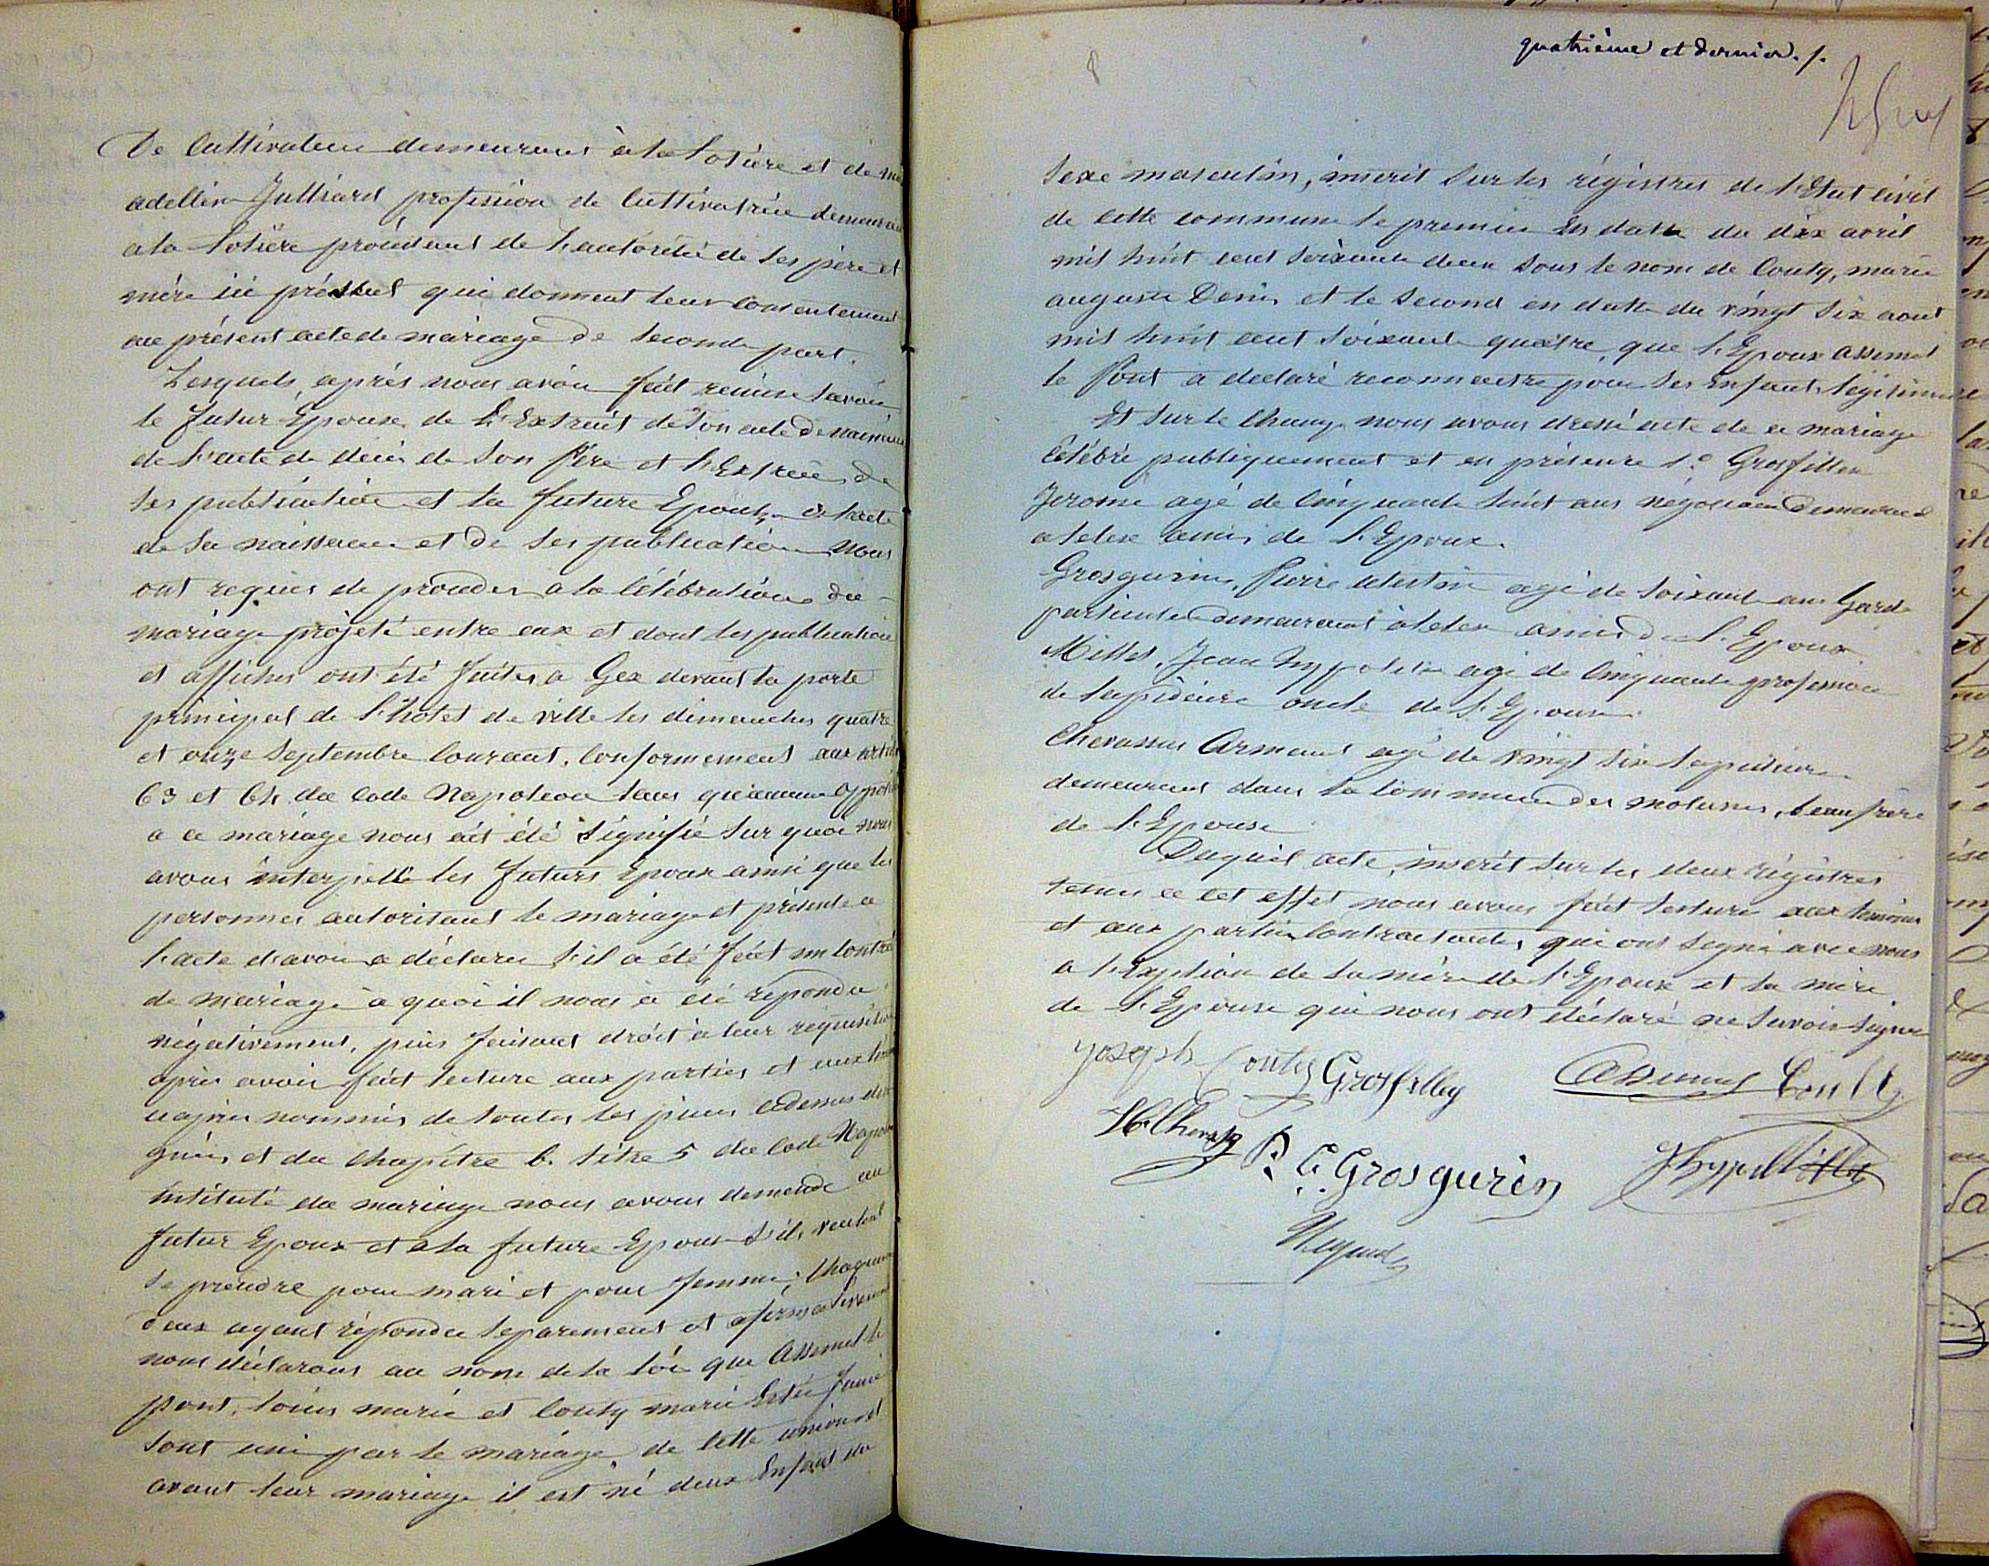 De Cultivateur demeurant à la Sotière et de
adelline Julliard profession de Cultivatrice
a la Sotière procédant de l'autorité de ses père et
mère ici présent qui donnent leur consentement
au présent acte de mariage de seconde part.
Lesquels après nous avoir fait remise savoir
le futur Epouse, de l'Extrait de son acte de
de l'acte de décés de son Père et l'Extrait de
ses publication et la future Epouse de l'acte
de sa naissance et de ses publication Nous
ont requis de proceder a la Célébration du
mariage projeté entre eux et dont les publication
et affiches ont été faites a Gex devant la porte
principal de l'hotel de ville les dimanches quatre
et onze Septembre Courant. Conformement aux
63 et 64 du Code Napoleon sans qu'aucune
a ce mariage nous ait été signifié sur quoi nous
avons interpellé les futurs Epoux ainsi que les
personnes autorisant le mariage et présente a
l'acte d'avoir a déclarer s'il a été fait un
de mariage a quoi il nous a été répondu
négativement, puis faisant droit a leur
après avoir fait lecture aux parties et aux
nommés de toutes les pieces cidessus
et du Chapitre 6. titre 5 du Code
intitulé du mariage nous avons demandé au
futur Epoux et a la future Epouse s'ils veulent
se prendre pour mari et pour femme;
d'eux ayant répondu separement et
nous déclarons au nom de la loi que Assemat le
pont, Louis marie et Couty marie
sont uni par le mariage, de cette union et
avant leur mariage il est né deux Enfant du
quatrième et dernier./.
Sexe masculin, inscrit sur les régistres de l'Etat Civil
de cette commune le premier en date du dix avril
mil huit cent soixante deux sous le nom de Couty, marie
auguste Denis et le second en date du vingt six aout
mil huit cent soixante quatre, que l'Epoux Assemat
le Pont a declaré reconnaitre pour ses Enfants légitimes
Et sur le champ nous avons dressé acte de ce mariage
Célébré publiquement et en présence 1.o Grosfilley
Jerome agé de Cinquante huit ans négociant demeurant
a Lelex ami de l'Epoux.
Grosgurin, Pierre Celestin agé de soixante ans Garde
particulier demeurant a Lelex amis de l'Epoux
Millet, Jean hyppolite agé de Cinquante profession
de lapidaire oncle de l'Epouse.
Chevassus Armand agé de vingt six lapidaire
demeurant dans la Commune des molunes, beau frère
de l'Epouse
Duquel acte, inscrit sur les deux régistres
tenus a cet effet nous avons fait lecture aux temoins
et aux parties Contractantes qui ont signé avec nous
a l'exeption de la mère de l'Epoux et la mère
de l'Epouse qui nous ont déclaré ne savoir signer
Joseph Couty Grosfilley Assemat Couty
P. C. Grosgurin